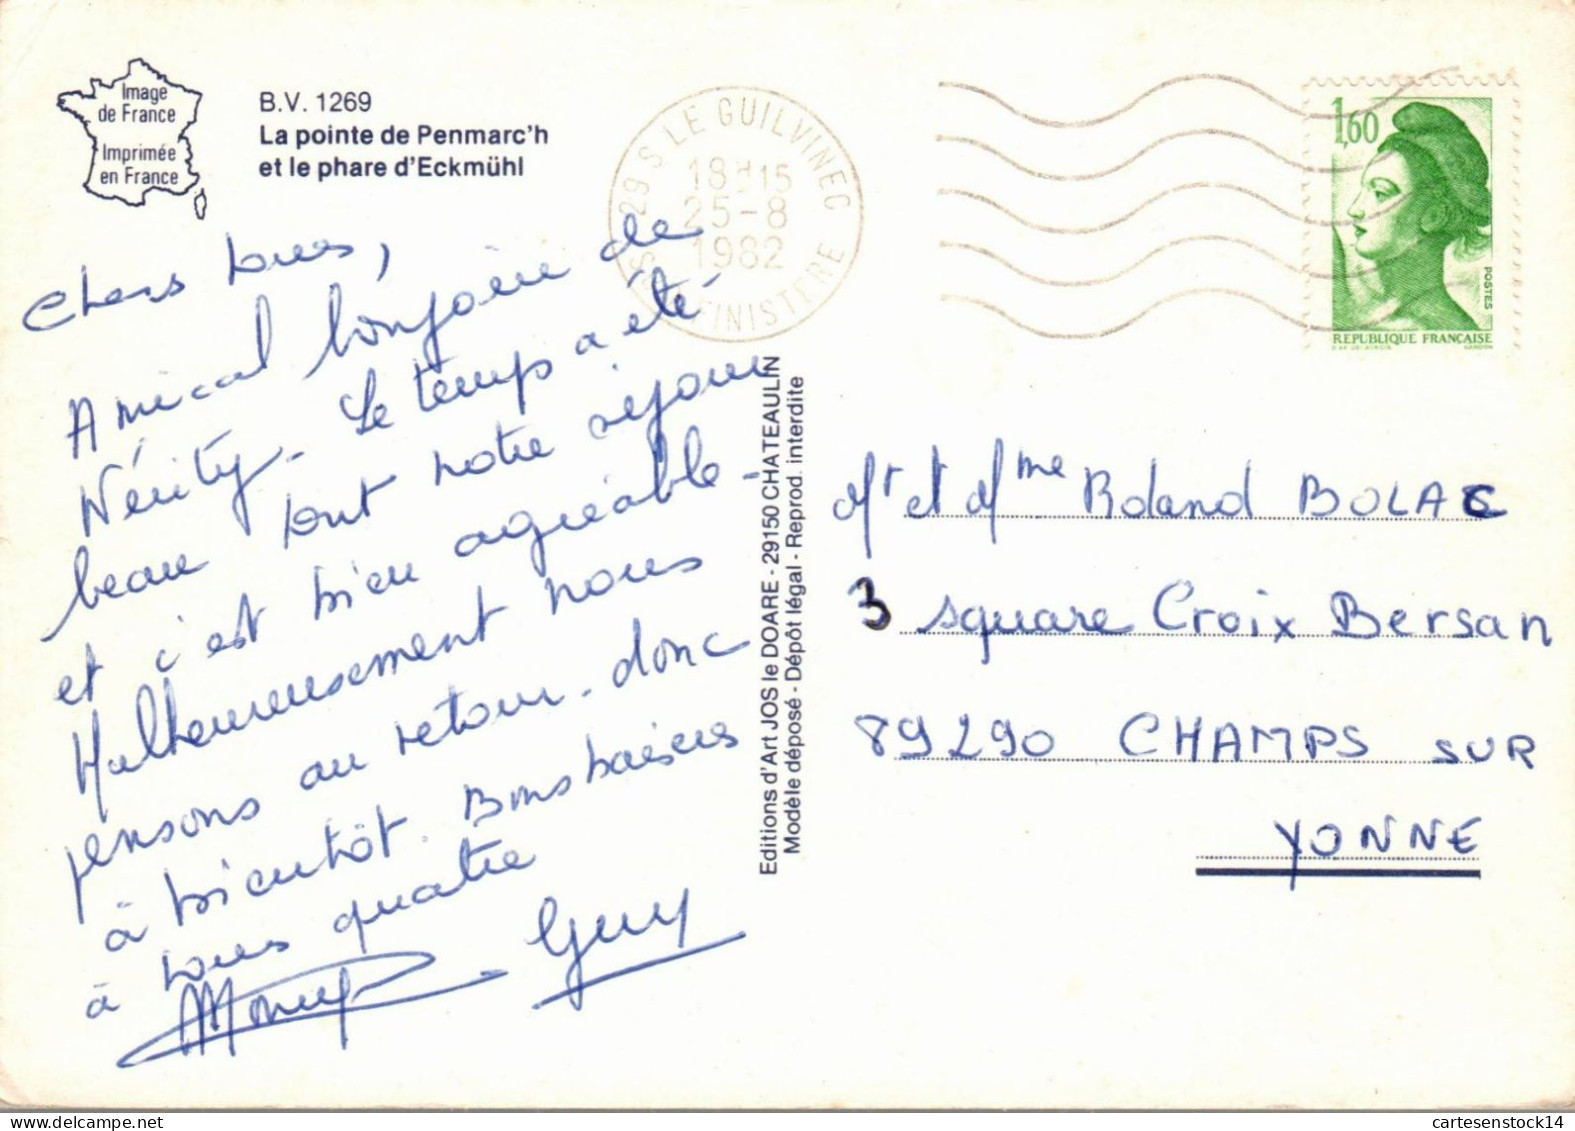 Image
de France
Imprimée
en France
B.V. 1269
La pointe de Penmarc'h
et le phare d'Eckmühl
29 S LE GUILVINEC
18H15
25-8
1982
FINISTERE
1,60
POSTES
REPUBLIQUE FRANÇAISE
Chers tous,
Amical bonjour de
Kérity. Le temps a été
beau tout notre séjour
et c'est bien agréable.
Malheureusement nous
pensons au retour. donc
à bientôt. Bons baisers
à tous quatre
Guy
Editions d'Art JOS le DOARE - 29150 CHATEAULIN
Modèle déposé - Dépôt légal - Reprod. interdite
Mr et Mme Roland BOLAC
3 square Croix Bersan
89290 CHAMPS SUR
YONNE
cartesenstock14